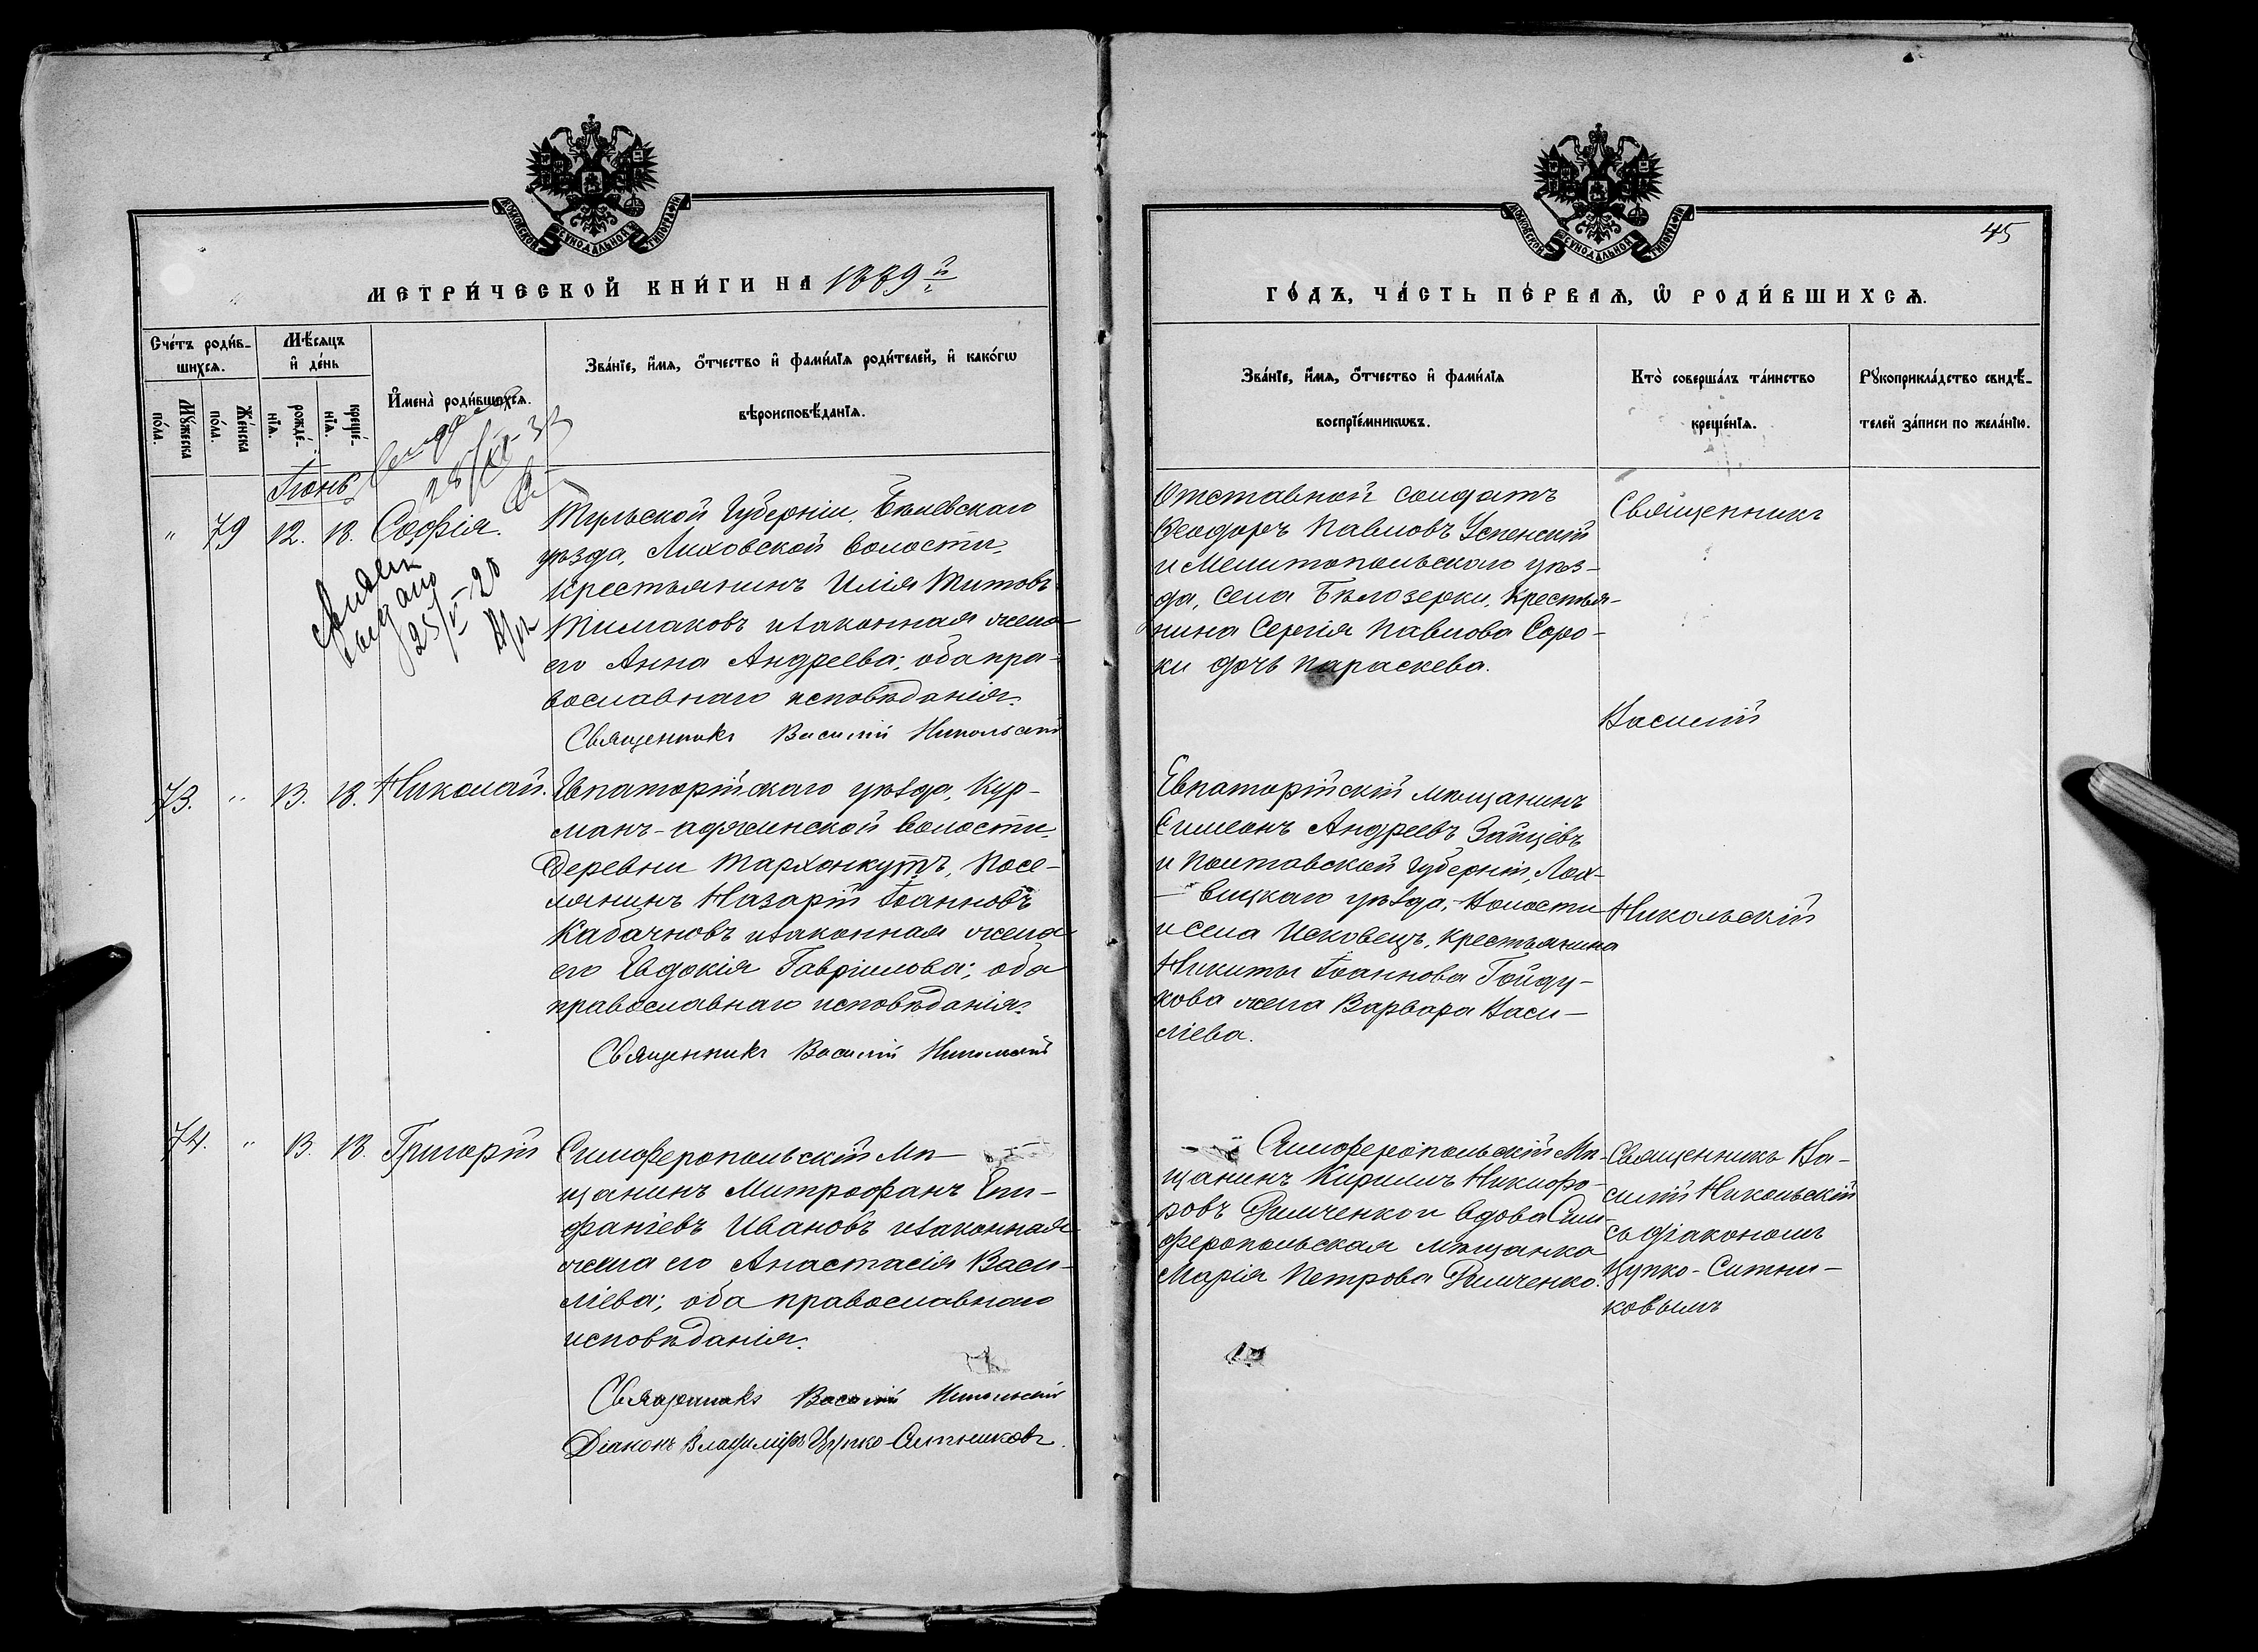 МОСКОВСКОЙ СУНОДАЛЬНОЙ ТИПОГРАФІИ
МЕТРИ́ЧЕСКОЙ КНИ́ГИ НА 1889й
Сче́тъ роди́в-
шихсѧ.
Мѣ́сѧцъ
и҆ де́нь
Мꙋ́жеска
по́ла.
Же́нска
по́ла.
рожде́-
нїѧ.
креще́-
нїѧ.
И҆мена̀ роди́вшихсѧ.
Зва́нїе, и҆́мѧ, ѻ҆́тчество и҆ фами́лїѧ роди́телей, и҆ како́гѡ
вѣроисповѣ́данїѧ.
Іюнь
28/XI-32
" 79 12. 18. Софія.
выдано
25/V-20
Тульской Губерніи, Бѣлевскаго
уѣзда, Лиховской волости,
крестьянинъ Илія Титовъ
Тимаковъ и законная жена
его Анна Андреева; оба пра-
вославнаго исповѣданія.
Священникъ Василій Никольскій
73. " 13. 18. Николай.
Евпаторійскаго уѣзда, Кур-
манъ-аджинской волости,
деревни Тарханкутъ, посе-
лянинъ Назарій Іоанновъ
Кабачновъ и законная жена
его Евдокія Гавріилова; оба
православнаго исповѣданія.
Священникъ Василій Никольскій
74. " 13. 18. Григорій
Симферопольскій Мѣ-
щанинъ Митрофанъ Епи-
фаніевъ Ивановъ и законная
жена его Анастасія Васи-
ліева; оба православнаго
исповѣданія.
Священникъ Василій Никольскій
Діаконъ Владиміръ Цупко-Ситниковъ.
МОСКОВСКОЙ СУНОДАЛЬНОЙ ТИПОГРАФІИ
45
ГО́ДЪ, ЧА́СТЬ ПЕ́РВАѦ, Ѡ҆ РОДИ́ВШИХСѦ.
Зва́нїе, и҆́мѧ, ѻ҆́тчество и҆ фами́лїѧ
воспрїе́мникѡвъ.
Кто̀ соверша́лъ та́инство
креще́нїѧ.
Рꙋкоприкла́дство свидѣ́-
телей за́писи по жела́нїю.
Отставной солдатъ
Ѳеодоръ Павловъ Успенскій
и Мелитопольскаго уѣз-
да, села Бѣлозерки, крестья-
нина Сергія Павлова Соро-
ки дочь Параскева.
Священникъ
Василій
Никольскій
Евпаторійскій мѣщанинъ
Симеонъ Андреевъ Зайцевъ
и Полтавской Губерніи, Лох-
вицкаго уѣзда, волости
и села Исковецъ, крестьянина
Никиты Іоаннова Гойду-
кова жена Варвара Васи-
ліева.
Симферопольскій Мѣ-
щанинъ Кириллъ Никифо-
ровъ Римченко и вдова Сим-
феропольская мѣщанка
Марія Петрова Римченко.
Священникъ Ва-
силій Никольскій
съ діакономъ
Цупко-Ситни-
ковымъ